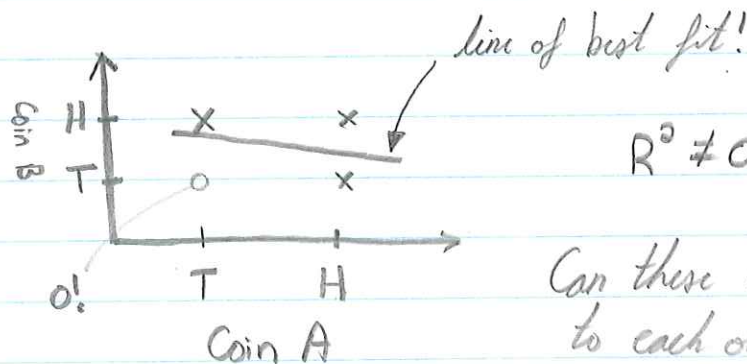 line of best fit!
Coin B
H
T
R² ≠ 0
O!
T H
Coin A
Can these
to each o